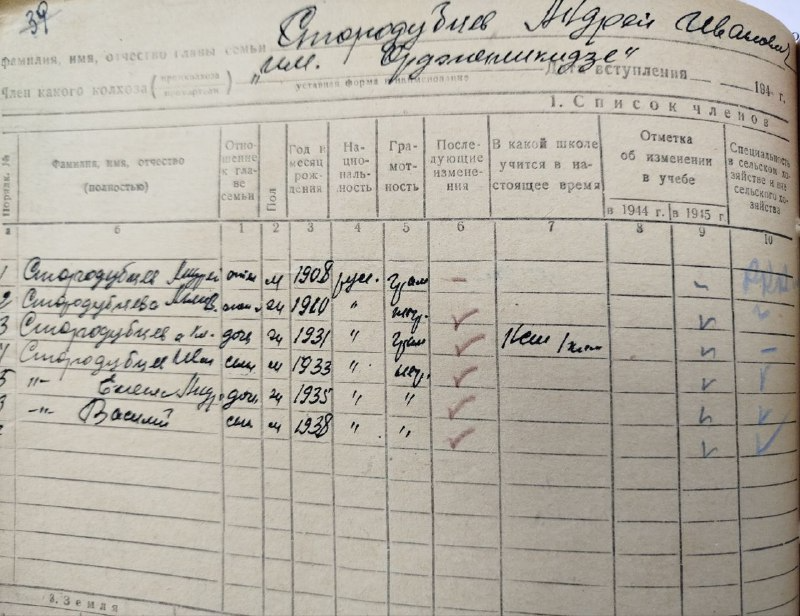 39
Стародубцев Андрей Иванович
Фамилия, имя, отчество главы семьи
„им. Орджоникидзе"
Член какого колхоза (промколхоза промартели) уставная форма и наименование вступления 194 г.
1. Список членов
Порядк. №
Фамилия, имя, отчество (полностью)
Отношение к главе семьи
Пол
Год и месяц рождения
Национальность
Грамотность
Последующие изменения
В какой школе учится в настоящее время
Отметка об изменении в учебе
в 1944 г. в 1945 г.
Специальность в сельском хозяйстве и вне сельского хозяйства
а б 1 2 3 4 5 6 7 8 9 10
1 Стародубцев Андрей м 1908 русс. грам –
2 Стародубцева ж 1910 " негр.
3 Стародубцева дочь ж 1931 " грам
4 Стародубцев Иван сын м 1933 " негр.
5 -"- Андр дочь ж 1935 " "
-"- Василий сын м 1938 " "
3. Земля